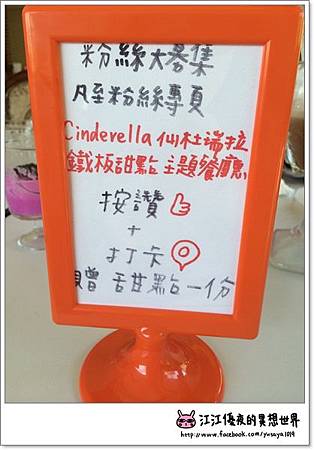 粉絲大募集
凡至粉絲專頁
Cinderella 仙杜瑞拉
鐵板甜點主題餐廳
按讚
+
打卡
贈 甜點一份
江江優夜的異想世界
http://www.facebook.com/yusaya1019